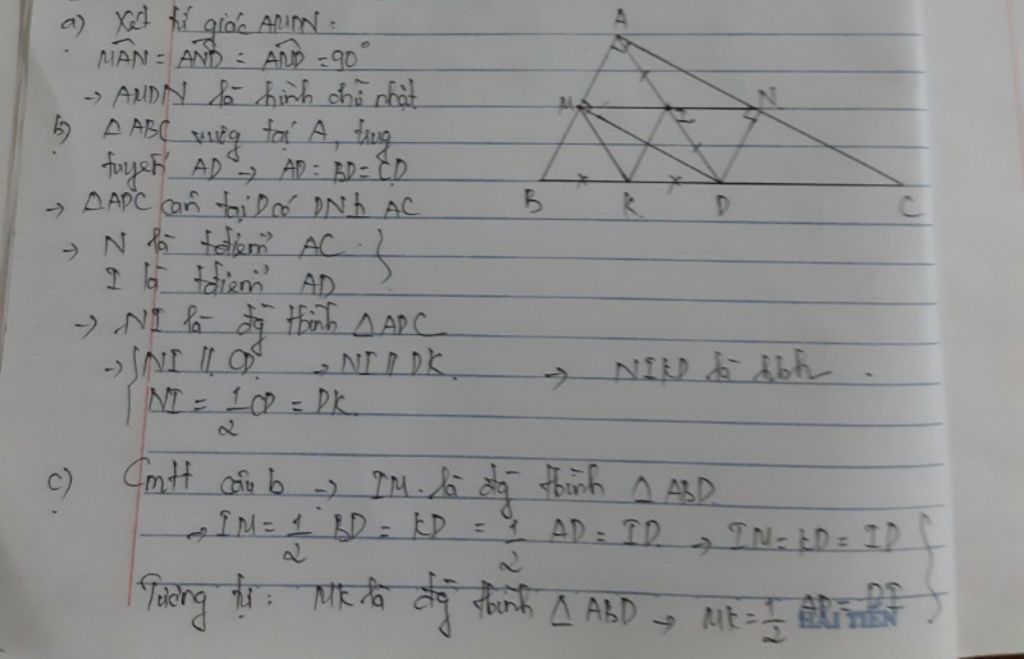 a) Xét tứ giác AMDN:
MAN = AND = AND = 90°
→ AMDN là hình chữ nhật
b) △ABC vuông tại A, trung
tuyến AD → AD = BD = CD
→ △ADC cân tại D có DN ⊥ AC
→ N là tđiểm AC
I là tđiểm AD
→ NI là đg tbình △ADC
→ NI // CD → NI // DK → NIKD là hbh.
NI = 1/2 CD = DK
c) Cmtt câu b → IM là đg tbình △ABD
→ IM = 1/2 BD = KD = 1/2 AD = ID → IM = KD = ID
Tương tự: MK là đg tbình △ABD → MK = 1/2 AD = DI
HẢI TIẾN
A
M
N
I
B
K
D
C